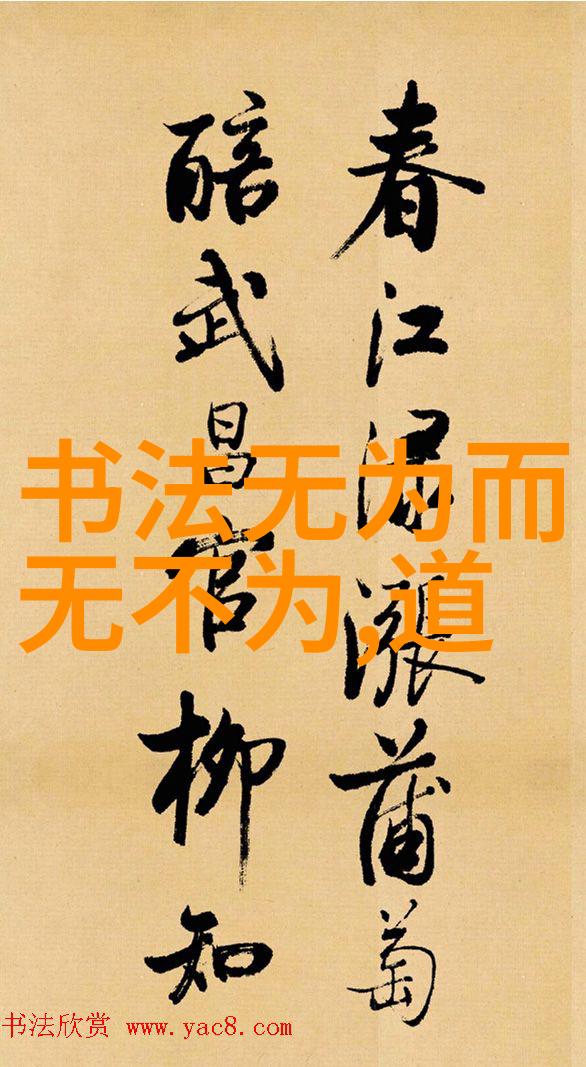 春江渌涨蒲萄
醅武昌官柳知
书法无为而
无不为,道
书法欣赏 www.yac8.com